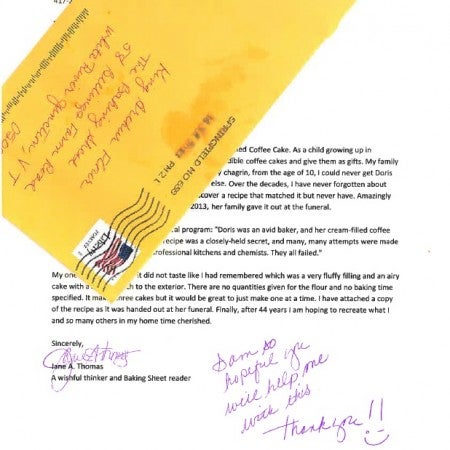 417-
King Arthur Flour
The Baking Sheet
58 Billings Farm Road
White River Junction, VT
SPRINGFIELD MO 658
PM 2 L
Liberty
FOREVER
ed Coffee Cake. As a child growing up in
dible coffee cakes and give them as gifts. My family
chagrin, from the age of 10, I could never get Doris
else. Over the decades, I have never forgotten about
cover a recipe that matched it but never have. Amazingly
2013, her family gave it out at the funeral.
al program: "Doris was an avid baker, and her cream-filled coffee
recipe was a closely-held secret, and many, many attempts were made
rofessional kitchens and chemists. They all failed."
My one it did not taste like I had remembered which was a very fluffy filling and an airy
cake with a ch to the exterior. There are no quantities given for the flour and no baking time
specified. It mak three cakes but it would be great to just make one at a time. I have attached a copy
of the recipe as it was handed out at her funeral. Finally, after 44 years I am hoping to recreate what I
and so many others in my home time cherished.
Sincerely,
Jane A. Thomas
Jane A. Thomas
A wishful thinker and Baking Sheet reader
I am so
hopeful you
will help me
with this
Thank you!!